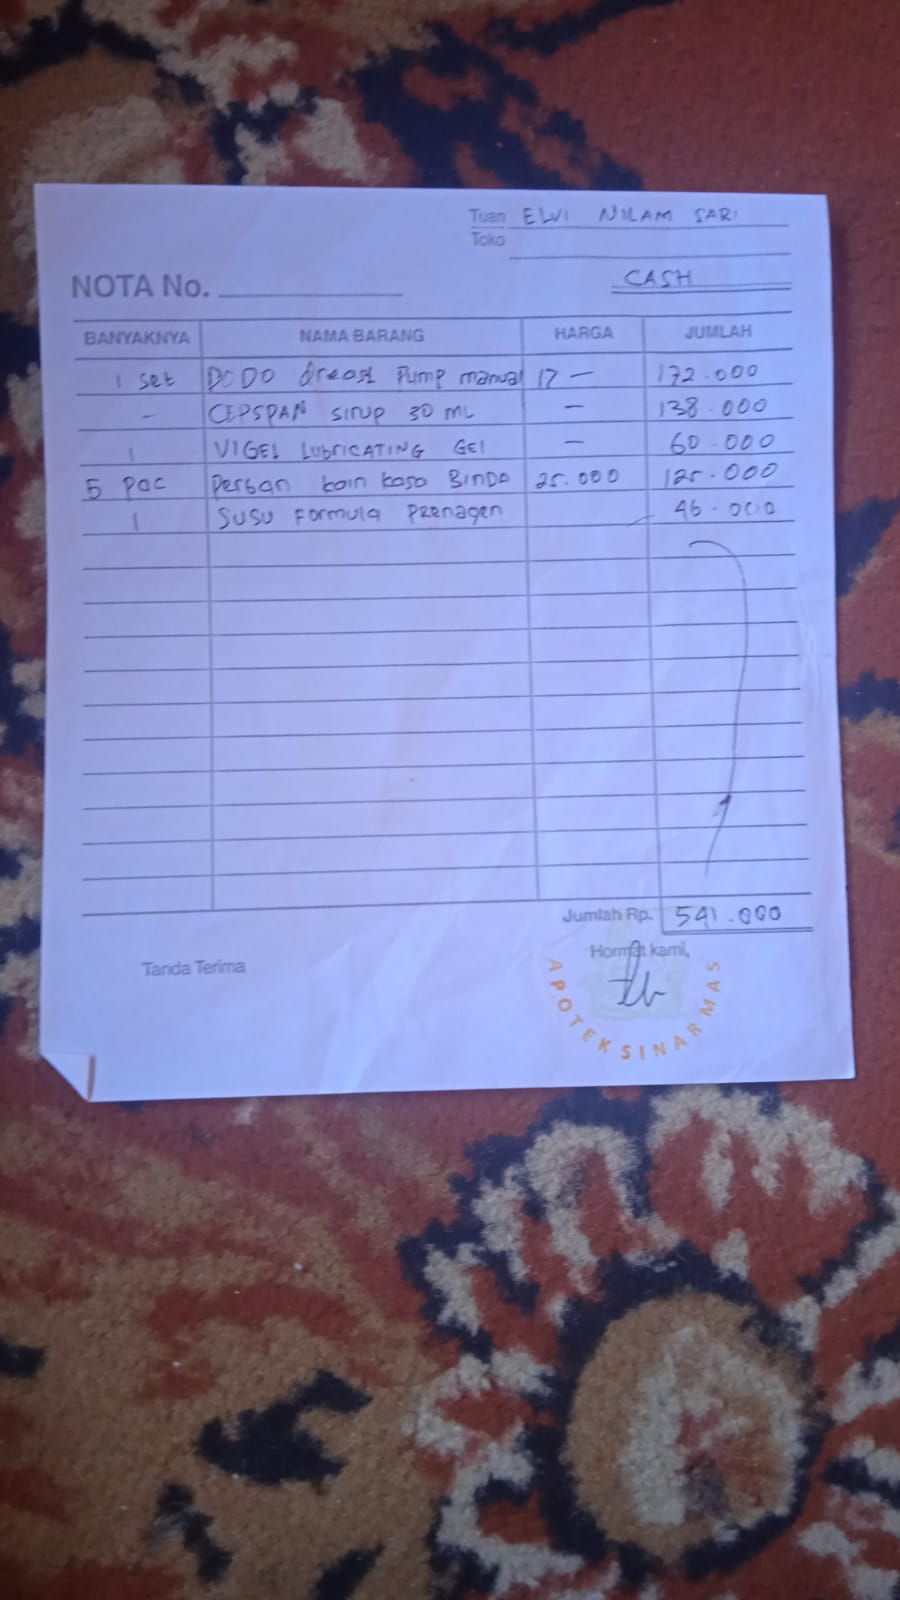 Tuan ELVI NILAM SARI
Toko
NOTA No. CASH
BANYAKNYA NAMA BARANG HARGA JUMLAH
1 set DODO Breast Pump manual 17 — 172.000
- CEPSPAN sirup 30 ML — 138.000
1 VIGEL LUBRICATING GEl — 60.000
5 pac Perban kain kasa BINDA 25.000 125.000
1 SUSU FORMULA PRENAGEN 46.000
Jumlah Rp. 541.000
Tanda Terima Hormat kami,
APOTEK SINARMAS